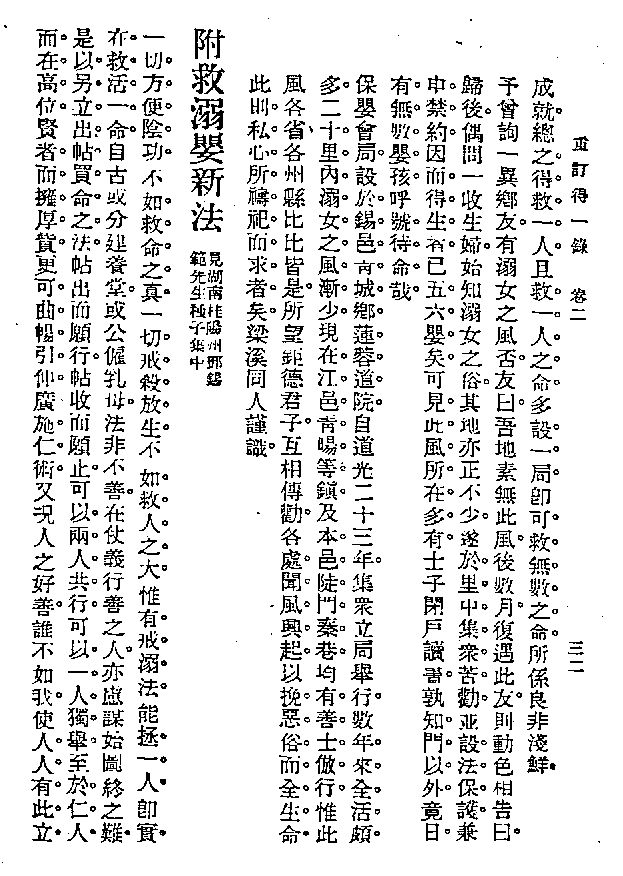 重訂得一錄 卷二 三二
成就總之得救一人且救一人之命多設一局卽可救無數之命所係良非淺鮮。
予曾詢一異鄉友有溺女之風否友曰吾地素無此風後數月復遇此友則動色相告曰。
歸後偶問一收生婦始知溺女之俗其地亦正不少遂於里中集衆苦勸並設法保護兼
申禁約因而得生者已五六嬰矣可見此風所在多有士子閉戶讀書孰知門以外竟日
有無數嬰孩呼號待命哉
保嬰會局設於錫邑靑城鄉蓮蓉道院自道光二十三年集衆立局舉行數年來全活頗
多二十里內溺女之風漸少現在江邑靑暘等鎮及本邑陡門秦巷均有善士倣行惟此
風各省各州縣比比皆是所望鉅德君子互相傳勸各處聞風興起以挽惡俗而全生命
此則私心所禱祀而求者矣梁溪同人謹識。
附救溺嬰新法 見湖南桂陽州鄧錫
範先生極子集中
一切方便陰功不如救命之眞一切戒殺放生不如救人之大惟有戒溺法能拯一人卽實
在救活一命自古或分建養堂或公僱乳母法非不善在仗義行善之人亦慮謀始圖終之難。
是以另立出帖買命之法帖出而願行帖收而願止可以兩人共行可以一人獨舉至於仁人
而在高位賢者而擁厚貲更可曲暢引伸廣施仁術又況人之好善誰不如我使人人有此立